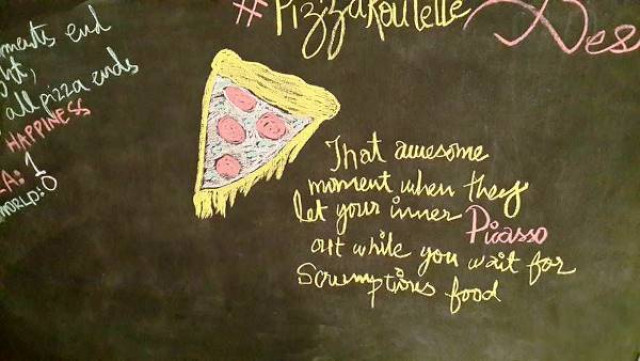 #PizzaRoulette
Des
ments end
ht,
all pizza ends
HAPPINESS
ZA: 1
WORLD: 0
That awesome
moment when they
let your inner Picasso
out while you wait for
Scrumptious food